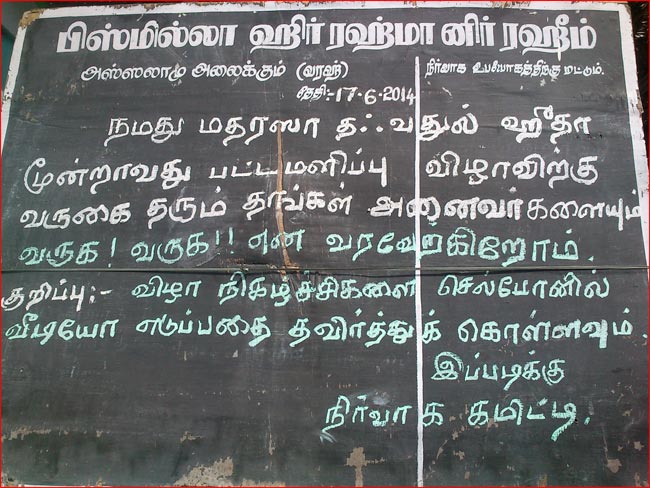 பிஸ்மில்லா ஹிர் ரஹ்மா னிர் ரஹீம்
அஸ்ஸலாமு அலைக்கும் (வரஹ்) நிர்வாக உபயோகத்திற்கு மட்டும்.
தேதி:-17-6-2014
நமது மதரஸா தஃவதுல் ஹீதா
மூன்றாவது பட்டமளிப்பு விழாவிற்கு
வருகை தரும் தாங்கள் அனைவர்களையும்
வருக! வருக!! என வரவேற்கிறோம்.
குறிப்பு:- விழா நிகழ்ச்சிகளை செல்போனில்
வீடியோ எடுப்பதை தவிர்த்துக் கொள்ளவும்.
இப்படிக்கு
நிர்வாக கமிட்டி.